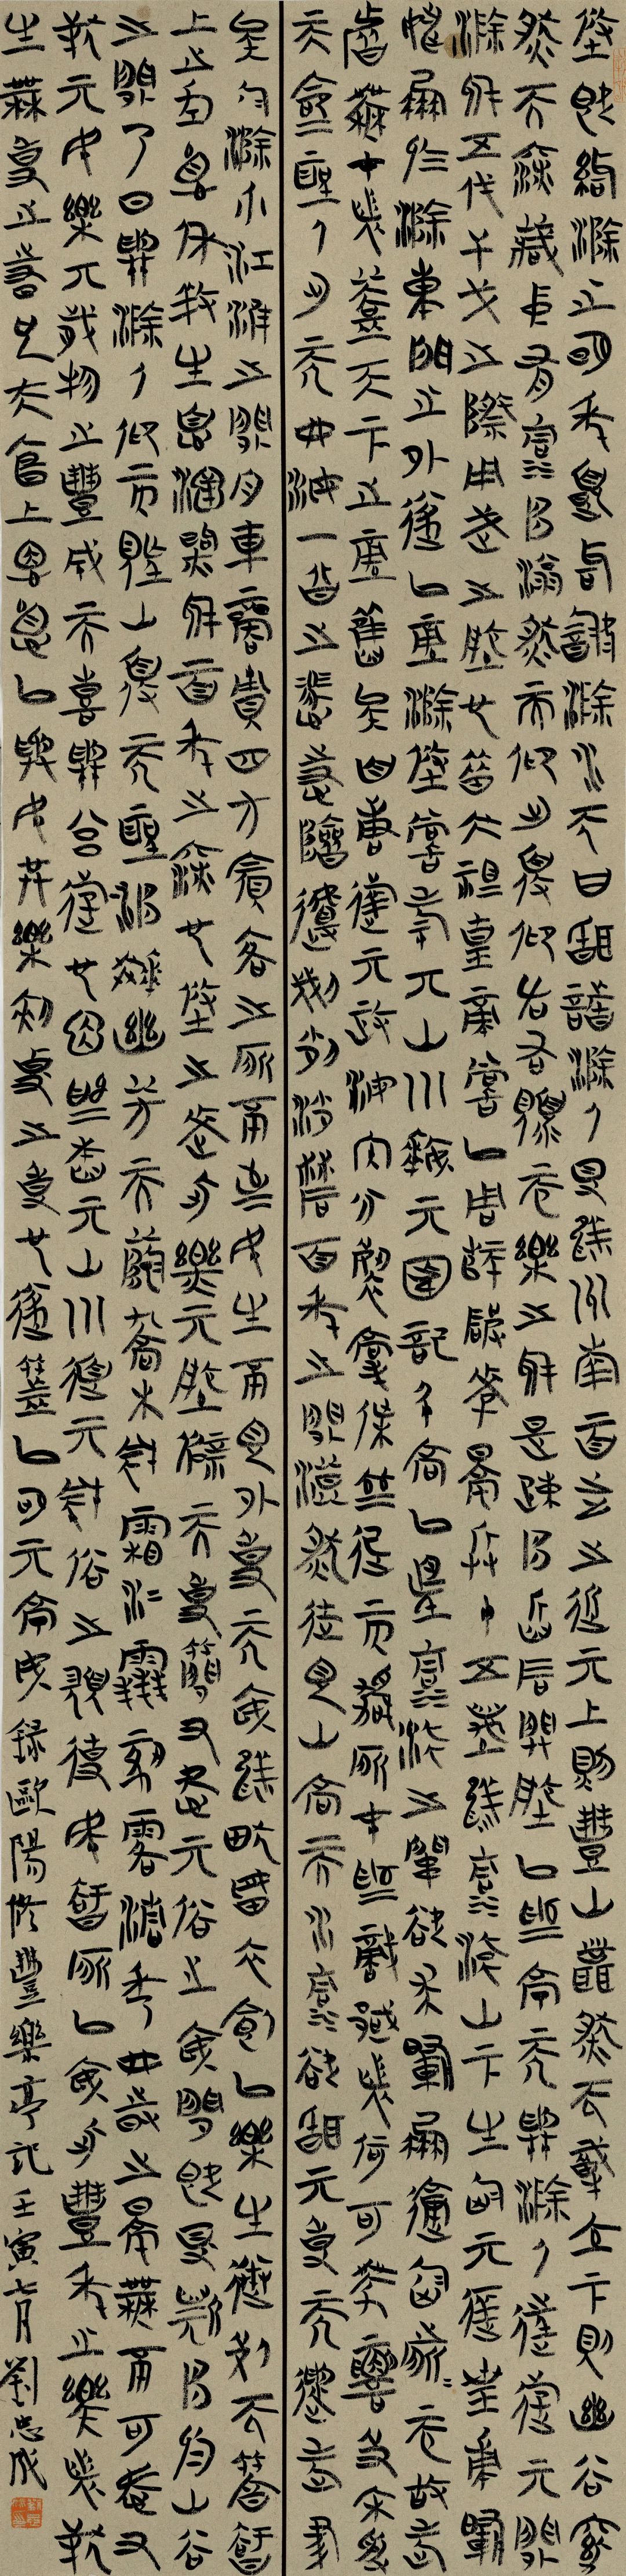 修既治滁之明年夏始飲滁水而甘問諸滁人得於州南百步之近其上則豐山聳然而特立下則幽谷窈
然而深藏中有清泉滃然而仰出俯仰左右顧而樂之於是疏泉鑿石闢地以為亭而與滁人往遊其間
滁於五代干戈之際用武之地也昔太祖皇帝嘗以周師破李景兵十五萬於清流山下生擒其將皇甫暉
姚鳳於滁東門之外遂以平滁修嘗考其山川按其圖記升高以望清流之關欲求暉鳳就擒之所而故老
皆無在也蓋天下之平久矣自唐失其政海內分裂豪傑並起而爭所在為敵國者何可勝數及宋受
天命聖人出而四海一嚮之憑恃險阻剗削消磨百年之間漠然徒見山高而水清欲問其事而遺老盡
矣今滁介江淮之間舟車商賈四方賓客之所不至民生不見外事而安於畎畝衣食以樂生送死而孰知
上之功德休養生息涵煦於百年之深也修之來此樂其地僻而事簡又愛其俗之安閒既得斯泉於山谷
之間乃日與滁人仰而望山俯而聽泉掇幽芳而蔭喬木風霜冰雪刻露清秀四時之景無不可愛又
幸其民樂其歲物之豐成而喜與予遊也因為本其山川道其風俗之美使民知所以安此豐年之樂者幸
生無事之時也夫宣上恩德以與民共樂刺史之事也遂書以名其亭焉錄歐陽修豐樂亭記壬寅七月劉忠成